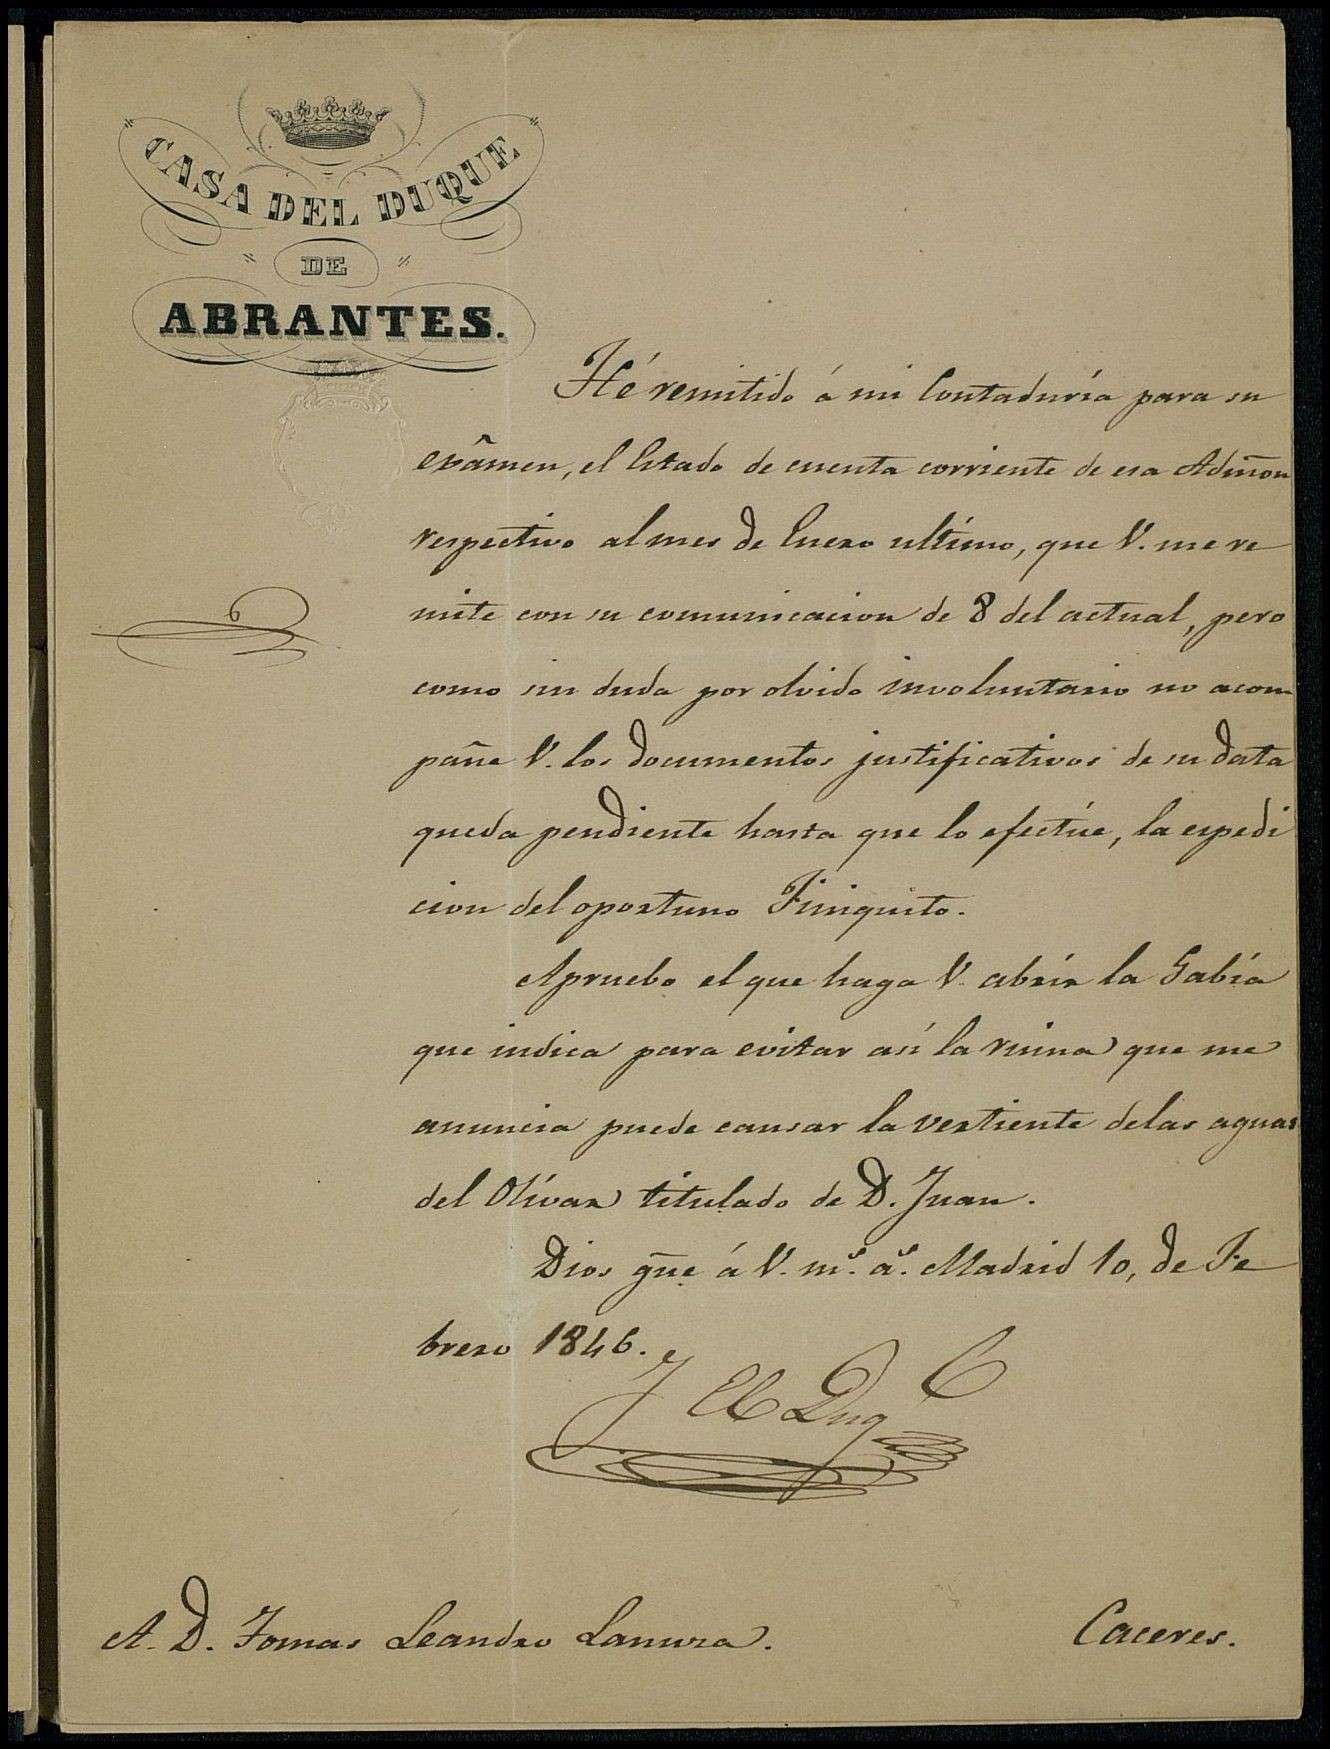 CASA DEL DUQUE
DE
ABRANTES.
Hé remitido á mi Contaduría para su
exâmen, el Estado de cuenta corriente de esa Admōn
respectivo al mes de Enero ultímo, que V. me re
mite con su comunicacion de 8 del actual, pero
como sin duda por olvido involuntario no acom
pañe V. los documentos justificativos de su data
queda pendiente hasta que lo efectúe, la espedi
cion del oportuno Finiquito.
Apruebo el que haga V. abrír la Gabía
que indica para evitar así la ruina que me
anuncia puede causar la vertiente delas aguas
del Olívar titulado de D. Juan.
Dios gūe á V. m.s a.s Madrid 10, de Fe
brero 1846.
El Duq
A. D. Tomas Leandro Lanuza.
Caceres.